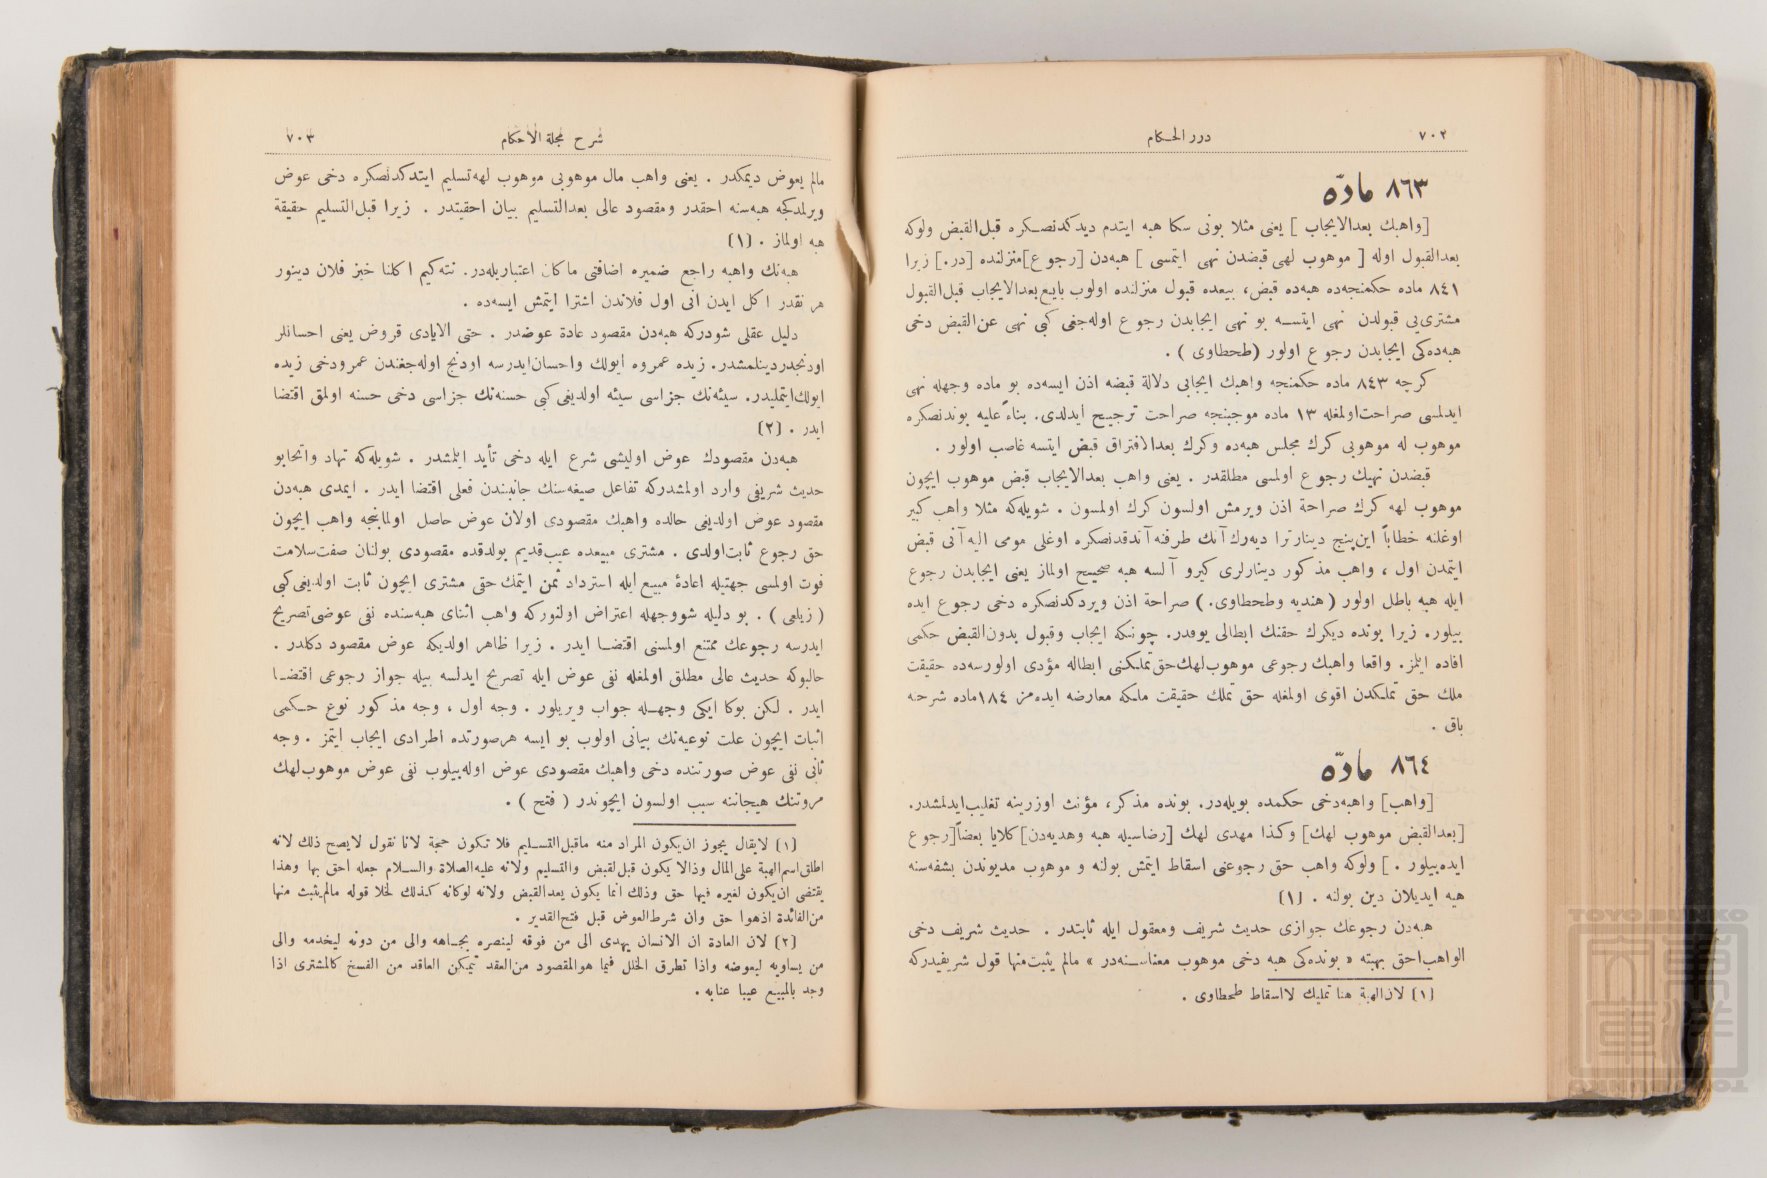 ٧٠٢
درر الحكام
٨٦٣ مادّه
[واهبك بعدالايجاب] يعنى مثلا بونى سكا هبه ايتدم ديدكدنصكره قبل‌القبض ولوكه
بعدالقبول اوله [موهوب لهى قبضدن نهى ايتمسى] هبه‌دن [رجوع] منزلنده [در.] زيرا
٨٤١ ماده حكمنجه‌ده هبه‌ده قبض، بيعده قبول منزلنده اولوب بايع بعدالايجاب قبل‌القبول
مشترى‌يى قبولدن نهى ايتسه بو نهى ايجابدن رجوع اوله‌جغى كبى نهى عن‌القبض دخى
هبه‌ده‌كى ايجابدن رجوع اولور (طحطاوى).
كرچه ٨٤٣ ماده حكمنجه واهبك ايجابى دلالة قبضه اذن ايسه‌ده بو ماده وجهله نهى
ايدلمسى صراحت‌اولمغله ١٣ ماده موجبنجه صراحت ترجيح ايدلدى. بناءً عليه بوندنصكره
موهوب له موهوبى كرك مجلس هبه‌ده وكرك بعدالافتراق قبض ايتسه غاصب اولور.
قبضدن نهيك رجوع اولمسى مطلقدر. يعنى واهب بعدالايجاب قبض موهوب ايچون
موهوب لهه كرك صراحة اذن ويرمش اولسون كرك اولمسون. شويله‌كه مثلا واهب كبير
اوغلنه خطاباً اين‌پنج دينارترا ديه‌رك آنك طرفنه آندقدنصكره اوغلى مومى اليه آنى قبض
ايتمدن اول، واهب مذكور دينارلرى كيرو آلسه هبه صحيح اولماز يعنى ايجابدن رجوع
ايله هبه باطل اولور (هنديه وطحطاوى.) صراحة اذن ويردكدنصكره دخى رجوع ايده
بيلور. زيرا بونده ديكرك حقنك ابطالى يوقدر. چونكه ايجاب وقبول بدون‌القبض حكمى
افاده ايلمز. واقعا واهبك رجوعى موهوب‌لهك‌حق‌تملكنى ابطاله مؤدى اولورسه‌ده حقيقت
ملك حق تملكدن اقوى اولمغله حق تملك حقيقت ملكه معارضه ايده‌من ١٨٤ماده شرحنه
باق.
٨٦٤ مادّه
[واهب] واهبه‌دخى حكمده بويله‌در. بونده مذكر، مؤنث اوزرينه تغليب‌ايدلمشدر.
[بعدالقبض موهوب لهك] وكذا مهدى لهك [رضاسيله هبه وهديه‌دن] كلايا بعضاً [رجوع
ايده‌بيلور.] ولوكه واهب حق رجوعنى اسقاط ايتمش بولنه و موهوب مديوندن بشقه‌سنه
هبه ايديلان دين بولنه. (١)
هبه‌دن رجوعك جوازى حديث شريف ومعقول ايله ثابتدر. حديث شريف دخى
الواهب‌احق بهبته «بونده‌كى هبه دخى موهوب معناسنه‌در» مالم يثبت‌منها قول شريفيدركه
(١) لان‌الهبة هنا تمليك لااسقاط طحطاوى.
شرح مجلة الاحكام
٧٠٣
مالم يعوض ديمكدر. يعنى واهب مال موهوبى موهوب لهه‌تسليم ايتدكدنصكره دخى عوض
ويرلمدكجه هبه‌سنه احقدر ومقصود عالى بعدالتسليم بيان احقيتدر. زيرا قبل‌التسليم حقيقة
هبه اولماز. (١)
هبه‌نك واهبه راجع ضميره اضافتى ماكان اعتباريله‌در. نته‌كيم اكلنا خبز فلان دينور
هر نقدر اكل ايدن آنى اول فلاندن اشترا ايتمش ايسه‌ده.
دليل عقلى شودركه هبه‌دن مقصود عادة عوضدر. حتى الايادى قروض يعنى احسانلر
اودنجدردينلمشدر. زيده عمروه ايولك واحسان‌ايدرسه اودنج اوله‌جغندن عمرودخى زيده
ايولك‌ايتمليدر. سيئه‌نك جزاسى سيئه اولديغى‌كبى حسنه‌نك جزاسى دخى حسنه اولمق اقتضا
ايدر. (٢)
هبه‌دن مقصودك عوض اوليشى شرع ايله دخى تأيد ايلمشدر. شويله‌كه تهاد واتحابو
حديث شريفى وارد اولمشدركه تفاعل صيغه‌سنك جانبندن فعلى اقتضا ايدر. ايمدى هبه‌دن
مقصود عوض اولديغى حالده واهبك مقصودى اولان عوض حاصل اولماينجه واهب ايچون
حق رجوع ثابت‌اولدى. مشترى مبيعده عيب‌قديم بولدقده مقصودى بولنان صفت‌سلامت
فوت اولمسى جهتيله اعادۀ مبيع‌ايله استرداد ثمن ايتمك حقى مشترى ايچون ثابت اولديغى‌كبى
(زيلعى). بو دليله شووجهله اعتراض اولنوركه واهب اثناى هبه‌سنده نفى عوضى‌تصريح
ايدرسه رجوعك ممتنع اولمسنى اقتضا ايدر. زيرا ظاهر اولديكه عوض مقصود دكلدر.
حالبوكه حديث عالى مطلق اولمغله نفى عوض ايله تصريح ايدلسه بيله جواز رجوعى اقتضا
ايدر. لكن بوكا ايكى وجهله جواب ويريلور. وجه اول، وجه مذكور نوع حكمى
اثبات ايچون علت نوعيه‌نك بيانى اولوب بو ايسه هرصورتده اطرادى ايجاب ايتمز. وجه
ثانى نفى عوض صورتنده دخى واهبك مقصودى عوض اوله‌بيلوب نفى عوض موهوب‌لهك
مروتنك هيجاننه سبب اولسون ايچوندر (فتح).
(١) لايقال يجوز ان‌يكون المراد منه ماقبل‌التسليم فلا تكون حجة لانا نقول لايصح ذلك لانه
اطلق‌اسم‌الهبة على‌المال وذالا يكون قبل‌لقبض والتسليم ولانه عليه‌الصلاة والسلام جعله احق بها وهذا
يقتضى ان‌يكون لغيره فيها حق وذلك انما يكون بعدالقبض ولانه لوكانه كذلك لخلا قوله مالم‌يثبت منها
من‌الفائدة اذهوا حق وان شرط‌العوض قبل فتح‌القدير.
(٢) لان العادة ان الانسان يهدى الى من فوقه لينصره بجاهه والى من دونه ليخدمه والى
من يساويه ليعوضه واذا تطرق الخلل فيما هوالمقصود من‌العقد تمكن العاقد من الفسخ كالمشترى اذا
وجد بالمبيع عيبا عنايه.
TOYO BUNKO